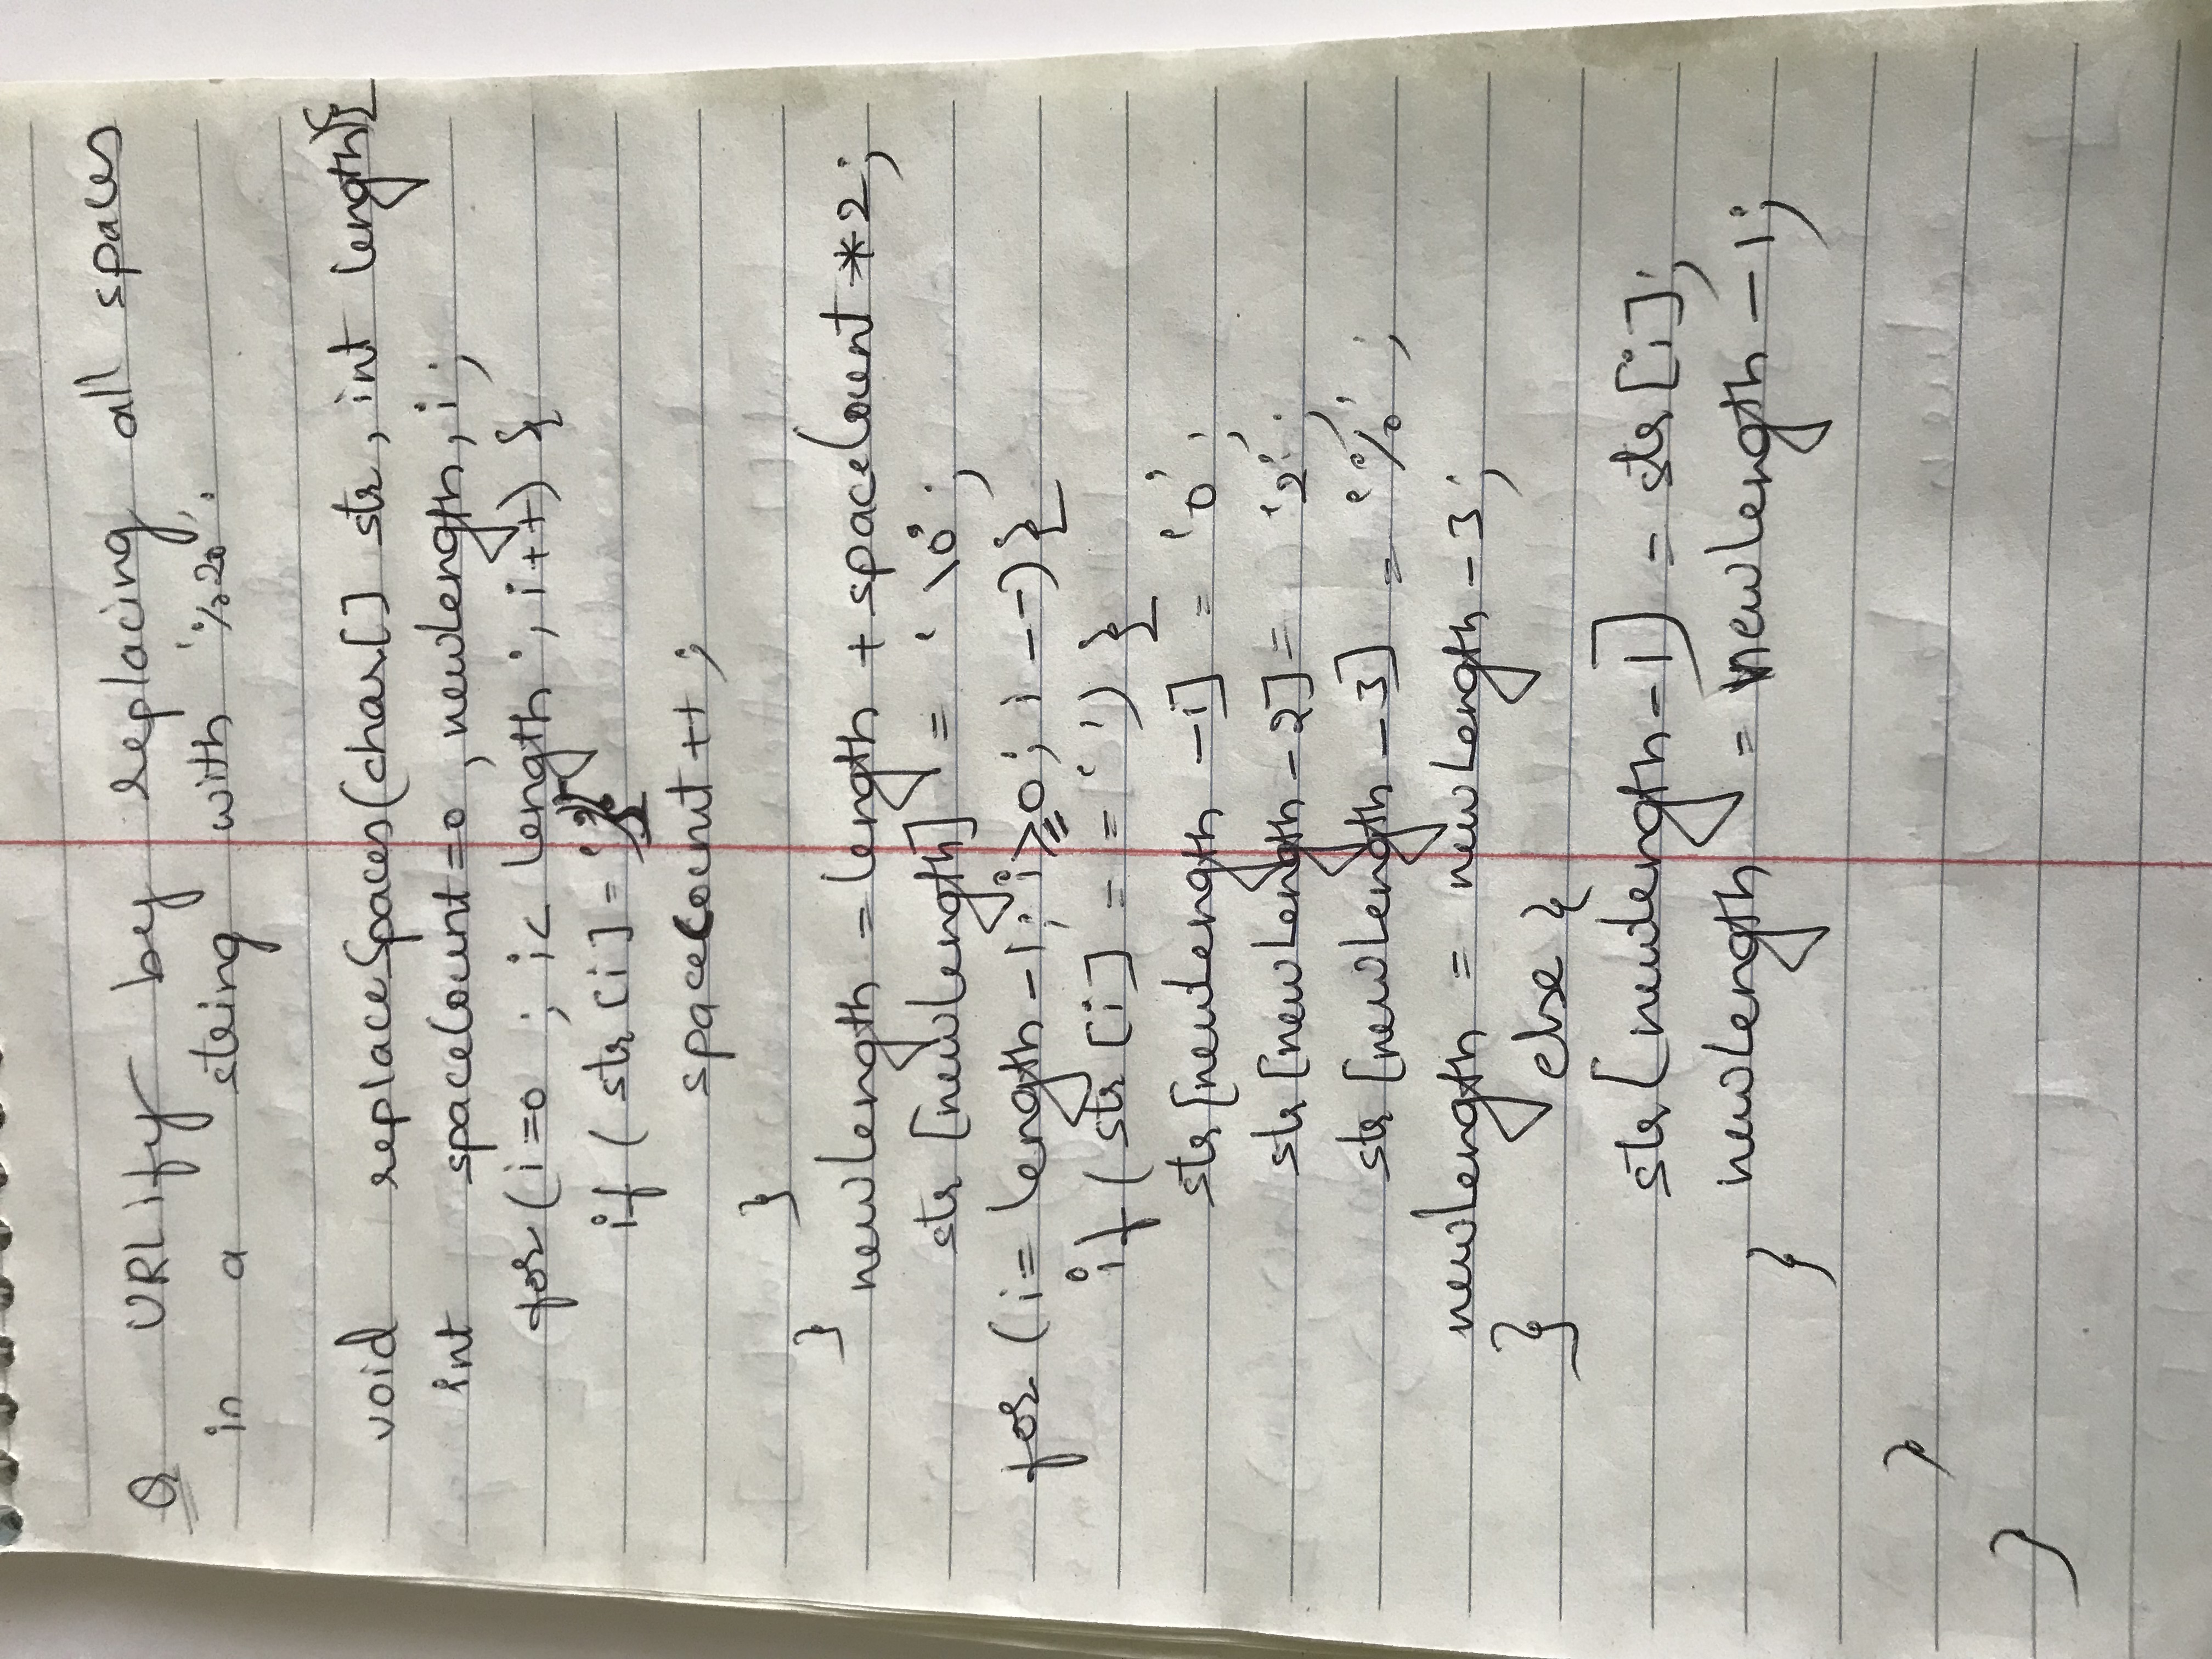 Q URLify by replacing all spaces
in a string with '%20'.
void replaceSpaces(char[] str, int length){
int spaceCount=0, newlength, i;
for (i=0 ; i< length ; i++) {
if ( str [i] = '
spaceCount++ ;
}
} newlength = length + spaceCount *2;
str [newlength] = '\0';
for (i= length-1; i>=0; i--) {
if ( str [i] == ' ') {
str [newlength -1] = '0';
str [newlength -2] = '2';
str [newlength -3] = '%';
newlength = newlength -3;
} else {
str [newlength-1] = str [i];
} newlength = newlength -1;
}
}